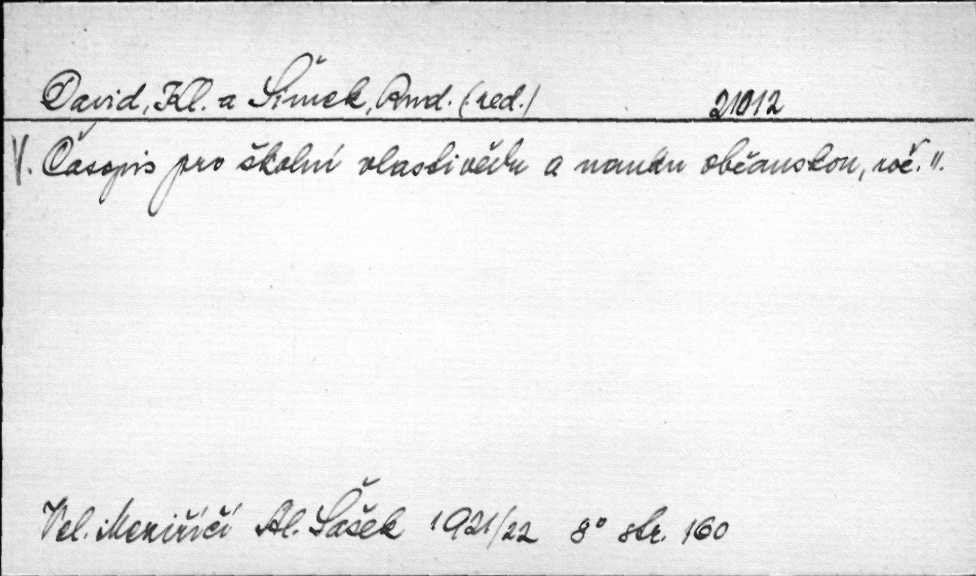 David, Kl. a Šimek, Rud. (red.) 21012
V. Časopis pro školní vlastivědu a nauku občanskou, roč. II.
Vel. Meziříčí Al. Šašek 1921/22 8° str. 160